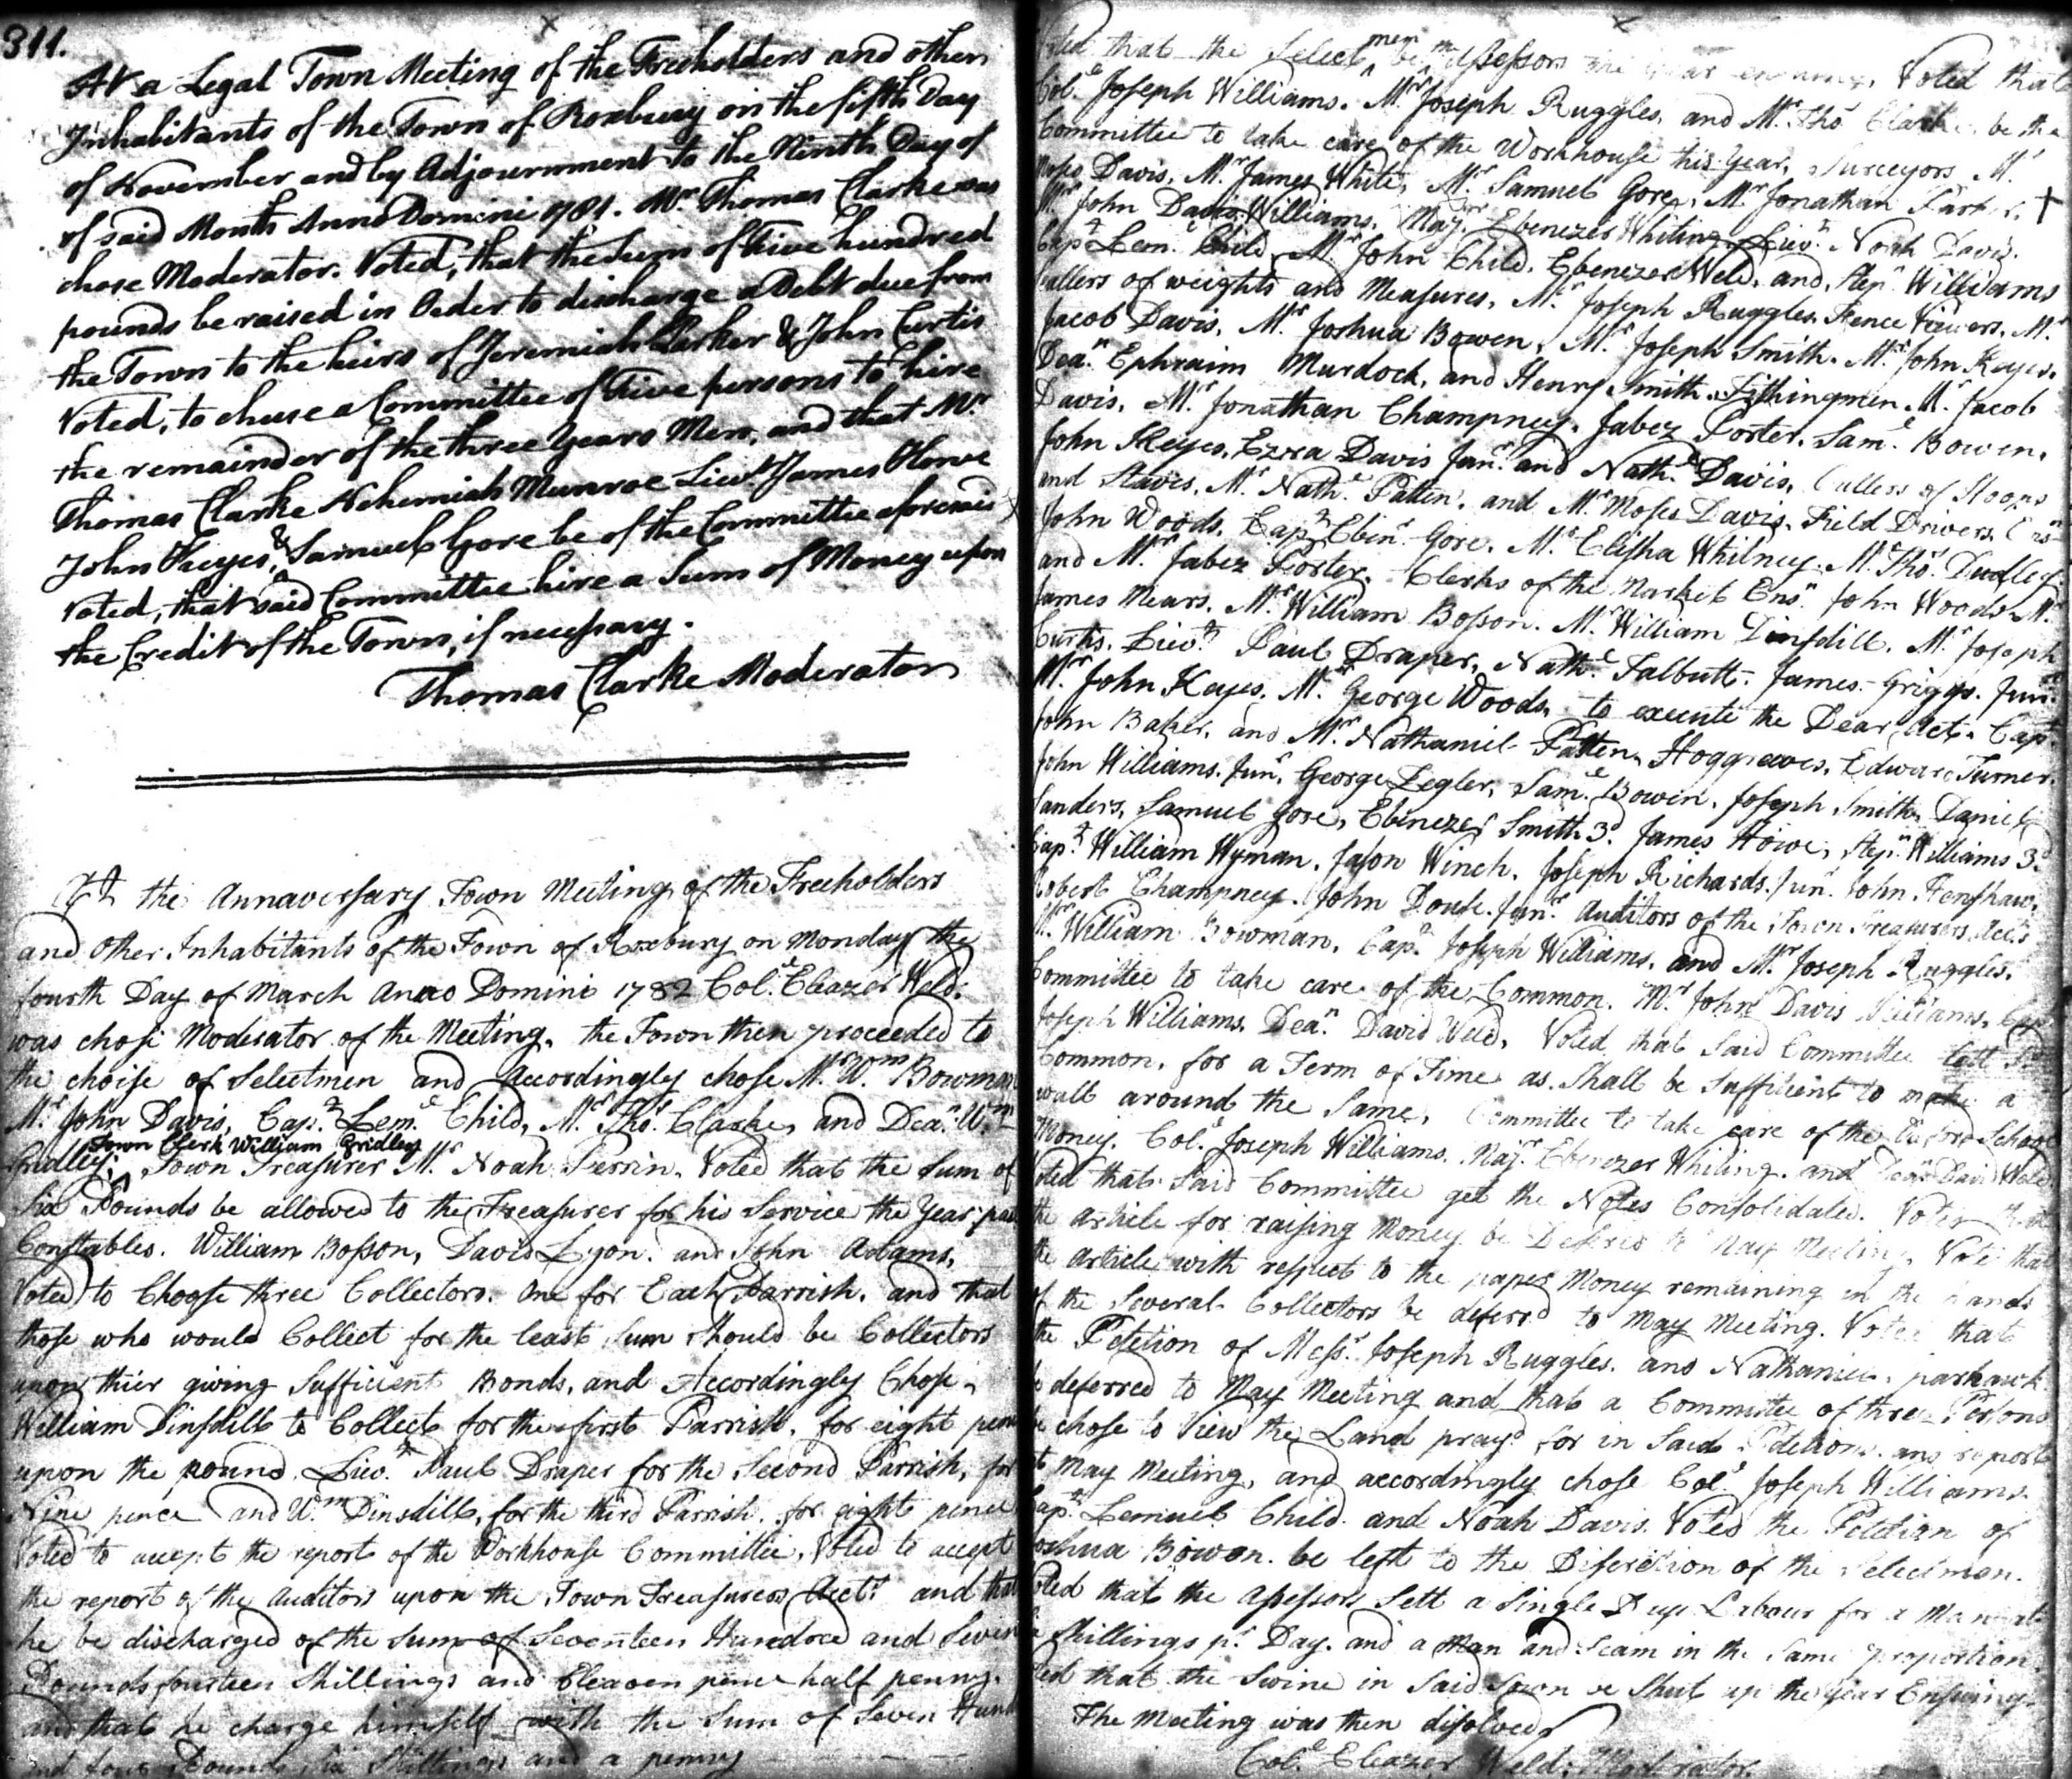 311.
At a Legal Town Meeting of the Freeholders and other
Inhabitants of the Town of Roxbury on the fifth Day
of November and by Adjournment to the Ninth Day of
of said Month Anno Domini 1781. Mr. Thomas Clarke was
chose Moderator. Voted, that the Sum of Five hundred
pounds be raised in Order to discharge a Debt due from
the Town to the heirs of Jeremiah Parker & John Curtis
Voted, to chuse a Committee of Five persons to hire
the remainder of the three Years Men, and that Mr.
Thomas Clarke Nehemiah Munroe Lieut. James Howe
John Keyes, & Samuel Gore be of the Committee aforesaid
Voted, that said Committee hire a Sum of Money upon
the Credit of the Town, if necessary.
Thomas Clarke Moderator
At the Annaversary Town Meeting of the Freeholders
and Other Inhabitants of the Town of Roxbury on Monday the
fourth Day of March Anno Domini 1782 Col. Eleazer Weld.
was chose Moderator of the Meeting. the Town then proceeded to
the choise of Selectmen and Accordingly chose Mr. Wm. Bowman
Mr. John Davis, Capt. Leml. Child, Mr. Thos. Clarke, and Dean. Wm.
Town Clerk William Gridley
Gridley. Town Treasurer Mr. Noah Perrin. Voted that the Sum of
Six Pounds be allowed to the Treasurer for his Service the Year past
Constables. William Bosson, David Lyon. and John Adams,
Voted to Choose three Collectors. One for Each Parrish. and that
those who would Collect for the least Sum should be Collectors
upon thier giving Sufficient Bonds, and Accordingly Chose
William Dinsdill to Collect for the first Parrish. for eight pence
upon the pound. Lieut. Paul Draper for the Second Parrish, for
Nine pence and Wm. Dinsdill, for the third Parrish. for eight pence
Voted to accept the report of the Workhouse Committee, Voted to accept
the report of the Auditors upon the Town Treasurers Acct. and that
he be discharged of the Sum of Seventeen Hundred and Seven
Pounds fourteen Shillings and Eleaven pence half penny.
and that he charge himself with the Sum of Seven Hund
and four Pounds Six Shillings and a penny
Voted that the Selectmen be Assessors the Year ensuing. Voted that
Col. Joseph Williams. Mr. Joseph Ruggles, and Mr. Thos. Clarke. be the
Committee to take care of the Workhouse this Year, Surveyors Mr.
Moses Davis, Mr. James White, Mr. Samuel Gore, Mr. Jonathan Parker,
Mr. John Davis Williams, Majr. Ebenezer Whiting, Lieut. Noah Davis.
Capt. Lem. Child, Mr. John Child. Ebenezer Weld, and, Stepn. Williams
Cullers of weights and Measures, Mr. Joseph Ruggles. Fence Viewers, Mr.
Jacob Davis, Mr. Joshua Bowen, Mr. Joseph Smith. Mr. John Keyes.
Dean. Ephraim Murdock, and Henry Smith. Tithingmen. Mr. Jacob
Davis, Mr. Jonathan Champney. Jabez Porter. Saml. Bowen,
John Keyes. Ezra Davis Junr. and Nathl. Davis, Cullers of Hoops
and Staves. Mr. Nathl. Patten, and Mr. Moses Davis. Field Drivers. Ensn.
John Woods. Capt. Ebenr. Gore. Mr. Elisha Whitney. Mr. Thos. Dudley.
and Mr. Jabez Porter. Clerks of the Market Ensn. John Woods Mr.
James Mears, Mr. William Bosson. Mr. William Dinsdill. Mr. Joseph
Curtis. Lieut. Paul Draper, Nathl. Talbutt. James Griggs. Junr.
Mr. John Keyes. Mr. George Woods, to execute the Dear Act. Capt.
John Baker, and Mr. Nathaniel Patten, Hoggreaves. Edward Turner.
John Williams. Junr. George Zegler, Saml. Bowen. Joseph Smith, Daniel
Sanders, Samuel Gore, Ebenezer Smith 3d. James Howe, Stepn. Williams 3d.
Capt. William Wyman. Jason Winch. Joseph Richards. Junr. John Henshaw,
Robert Champney. John Doule. Junr. Auditors of the Town Treasurers Accts
Mr. William Bowman, Capt. Joseph Williams. and Mr. Joseph Ruggles.
Committee to take care of the Common. Mr. John Davis Williams, Capt.
Joseph Williams. Dean. David Weld, Voted that Said Committee Lett Sd.
Common, for a Term of Time as Shall be Sufficient to make a
wall around the Same, Committee to take care of the School
Money. Col. Joseph Williams. Majr. Ebenezer Whiting. and Dean. David Weld
Voted that Said Committee get the Notes Consolidated. Voted that
the Article for raising Money be Deferd to May Meeting. Vote that
the Article with respect to the paper Money remaining in the hands
of the Several Collectors be deferrd to May Meeting. Voted that
the Petetion of Messrs. Joseph Ruggles. and Nathaniel parkawk
be deferred to May Meeting and that a Committee of three Persons
be chose to View the Land prayd for in Said Petetion. and report
at May Meeting, and accordingly chose Col. Joseph Williams.
Capt. Lemuel Child. and Noah Davis. Voted the Petetion of
Joshua Bowen. be left to the Discretion of the Selectmen.
Voted that the Assessors Sett a Single Days Labour for a Man at
Shillings pr. Day. and a Man and Team in the Same proportion.
Voted that the Swine in Said Town be Shut up the Year Ensuing.
The Meeting was then disolved
Col. Eleazer Weld. Moderator.